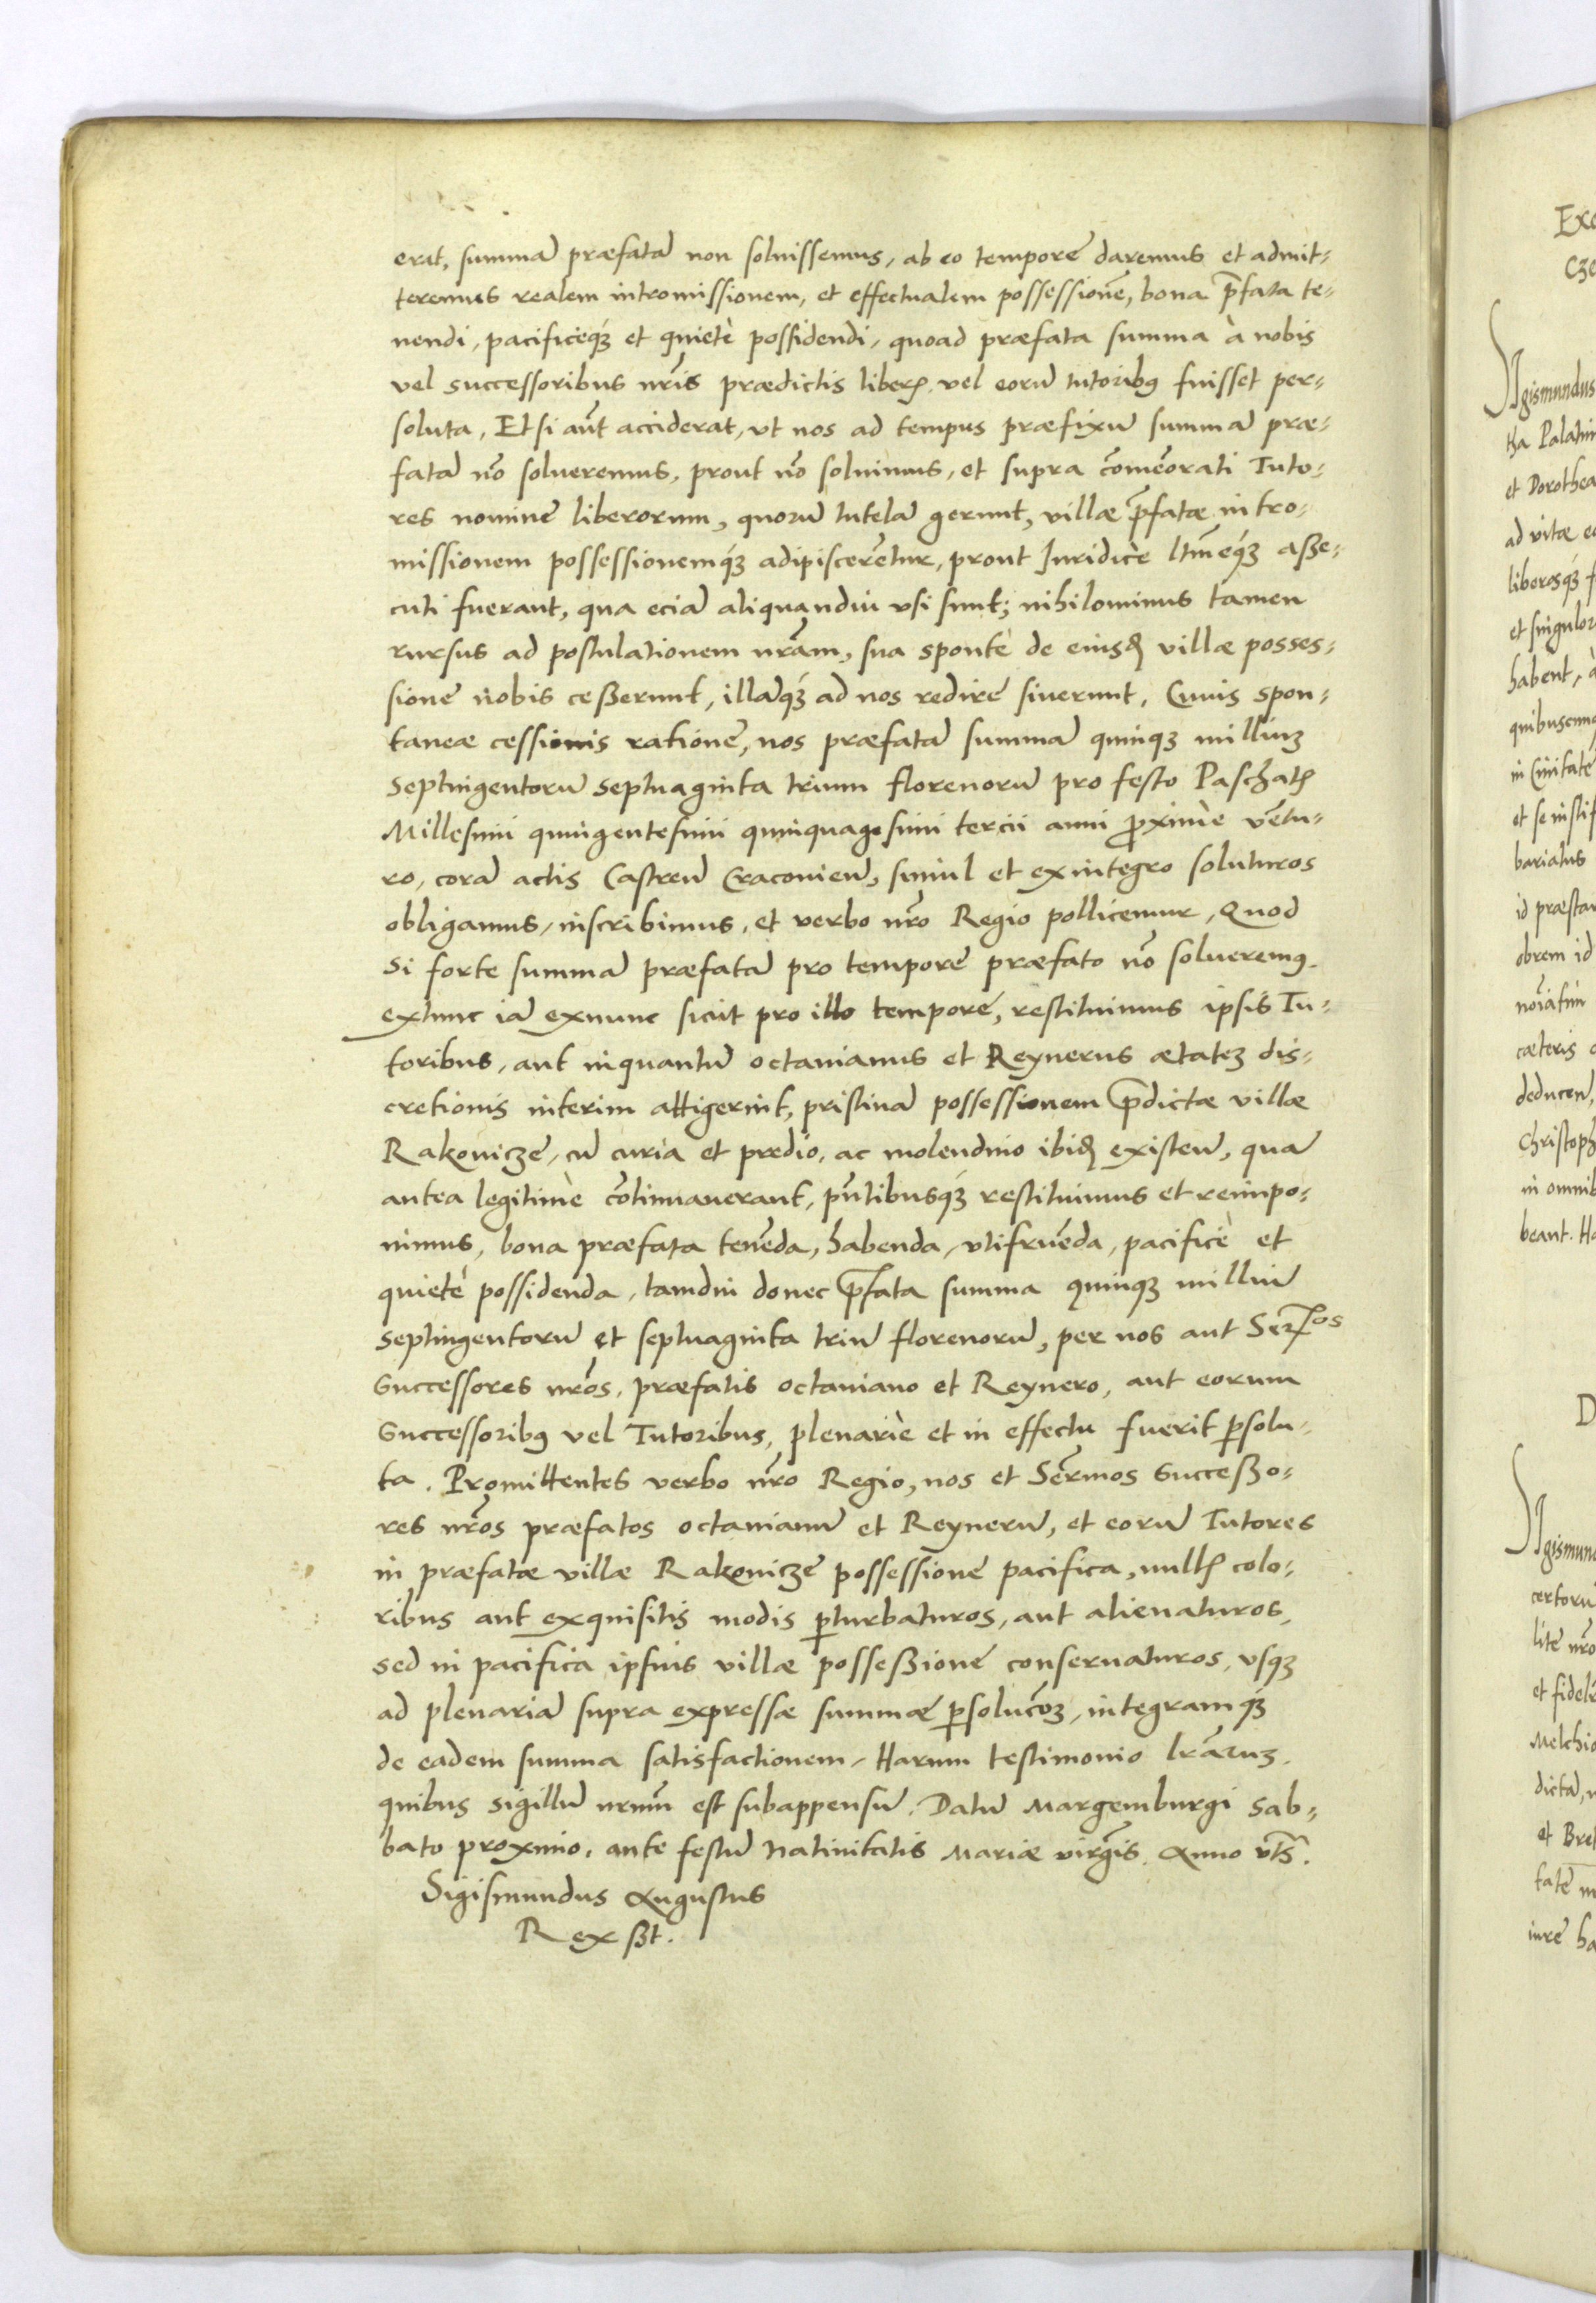 erat, summā præfatā non soluissemus, ab eo tempore daremus et admit-
teremus realem intromissionem, et effectualem possessionē, bona p̄fata te-
nendi, pacificeq́ꝫ et quietè possidendi, quoad præfata summa à nobis
vel successoribus nr̄is prædictis liberꝭ vel eorū tutoribꝰ fuisset per-
soluta, Etsi aūt acciderat, vt nos ad tempus præfixū summā præ-
fatā nō solueremus, prout nō soluimus, et supra cōmēorati Tuto-
res nomine liberorum, quorū tutelā gerunt, villæ p̄fatæ intro-
missionem possessionemq́ꝫ adipiscerētur, prout Juridicè ltm̄eq́ꝫ asse-
cuti fuerant, qua eciā aliquandiu vsi sunt; nihilominus tamen
rursus ad postulationem nr̄am, sua sponte de eiusꝺ villæ posses-
sione nobis cesserunt, illāq́ꝫ ad nos redire siuerunt, Cuius spon-
taneæ cessionis ratione, nos præfatā summā quinqꝫ milliuꝫ
septuingentorū septuaginta trium florenorū pro festo Paschatꝭ
Millesimi quingentesimi quinquagesimi tercii anni ꝓximè vētu-
ro, corā actis Castreñ Cracovieñ, simul et ex integro soluturos
obligamus, inscribimus, et verbo nr̄o Regio pollicemur, Quod
si forte summā præfatā pro tempore præfato nō solueremꝰ
extunc iā exnunc sicut pro illo tempore, restituimus ipsis Tu-
toribus, aut inquantū octauianus et Reynerus ætateꝫ dis-
cretionis interim attigerint, pristinā possessionem p̄dictæ villæ
Rakouicze, cū curia et prædio, ac molendino ibiꝺ existeñ, qua
antea legitimè cōtinuauerant, pn̄tibusq́ꝫ restituimus et reimpo-
nimus, bona præfata tenēda, habenda, vtifruēda, pacificè et
quietè possidenda, tamdiu donec p̄fata summa quinqꝫ milliū
septingentorū et septuaginta triū florenorū, per nos aut Ser^mos
Successores nr̄os, præfatis octauiano et Reynero, aut eorum
Successoribꝰ vel Tutoribus, plenariè et in effectu fuerit ꝑsolu-
ta. Promittentes verbo nr̄o Regio, nos et Ser̄mos Successo-
res nr̄os præfatos octauianū et Reynerū, et eorū Tutores
in præfatæ villæ Rakouicze possessione pacifica, nullꝭ colo-
ribus aut exquisitis modis ꝑturbaturos, aut alienaturos,
sed in pacifica ipsius villæ possessione conseruaturos, vsqꝫ
ad plenariā supra expressæ summæ ꝑsolucōꝫ, integramq́ꝫ
de eadem summa satisfactionem, Harum testimonio lr̄aruꝫ
quibus sigillū nrm̄ est subappensū. Datū Margemburgi Sab-
bato proximo, ante festū Natiuitatis Mariæ virgīs. Anno vts̄.
Sigismundus Augustus
Rex sst.
Exe
Cze
Sigismundus
tha Palatin
et Dorothea
ad vitæ eo
liberosq́ꝫ f
et singulor
habent, à
quibuscunq
in Ciuitate
et se instif
bariatus
id præstar
obrem id
noīatim
cæteris
deducen,
Christoph
in omnib
beant. Ha
D
Sigismund
certoru
lite nr̄o
et fidele
Melchio
dictā,
et Bret
tate
iure ha